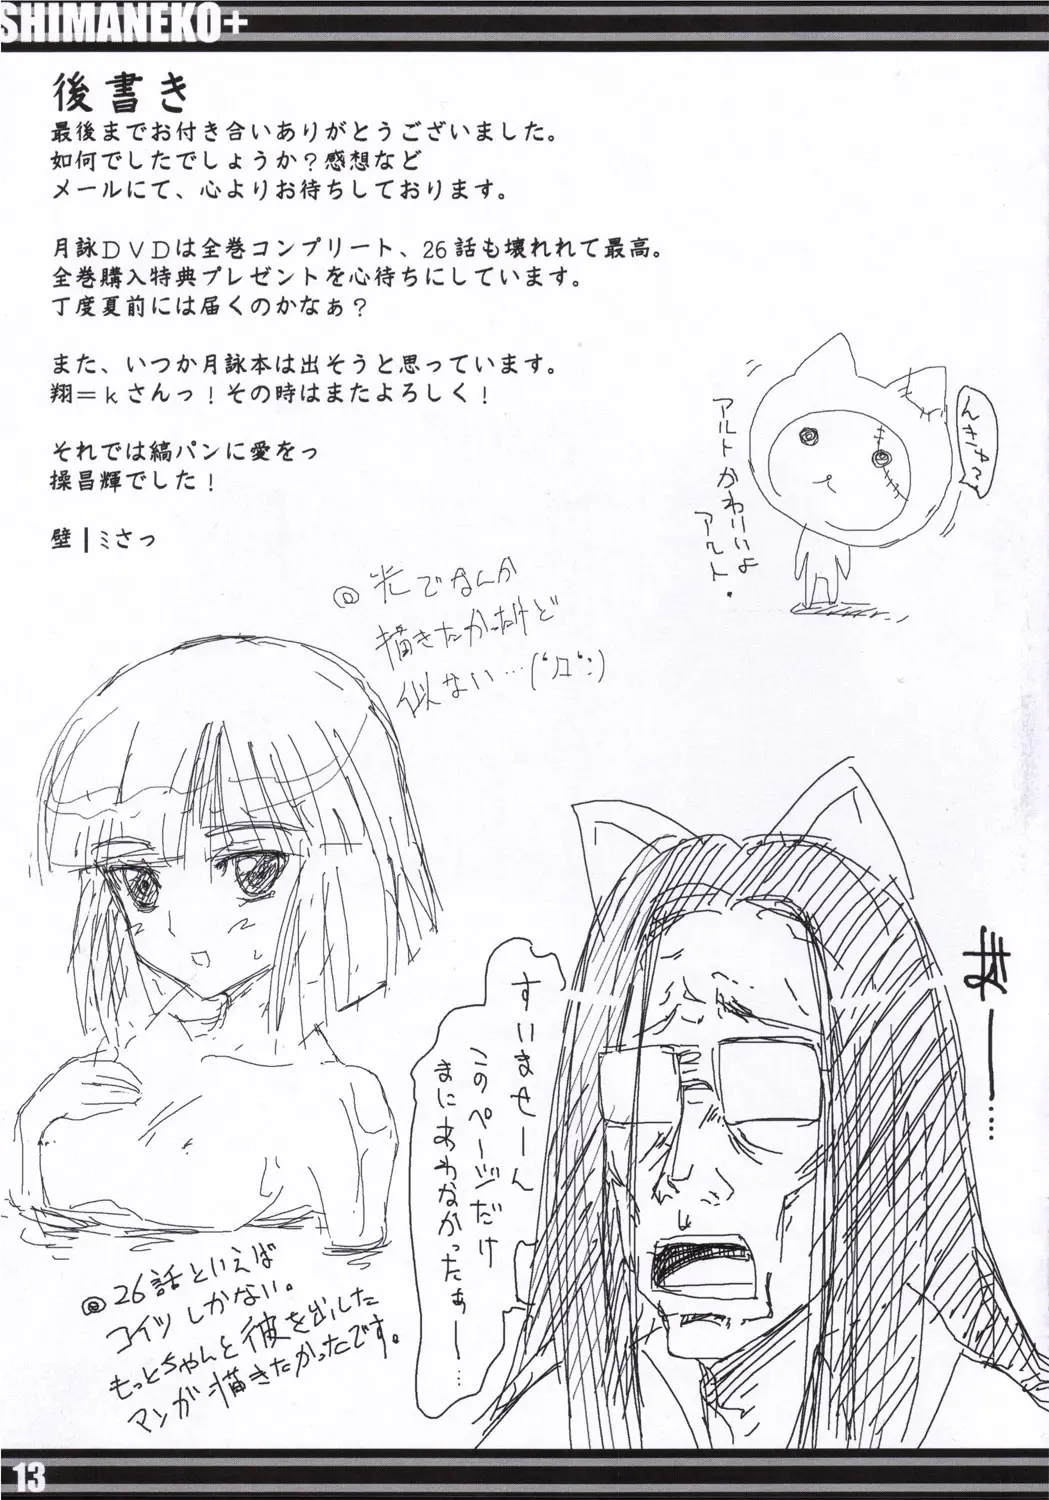 SHIMANEKO+
後書き
最後までお付き合いありがとうございました。
如何でしたでしょうか？感想など
メールにて、心よりお待ちしております。
月詠ＤＶＤは全巻コンプリート、26話も壊れれて最高。
全巻購入特典プレゼントを心待ちにしています。
丁度夏前には届くのかなぁ？
また、いつか月詠本は出そうと思っています。
翔＝ｋさんっ！その時はまたよろしく！
それでは縞パンに愛をっ
操昌輝でした！
壁┃ミさっ
アルトかわりいよ
アルト・
んきゅ〜
でなんか
描きたかったけど
似ない…(‘Д‘;)
すいませーん
このページだけ
まにあわなかったぁー…
まー……
@26話といえば
コイツしかない。
もっとちゃんと彼を出した
マンガ描きたかったです。
13